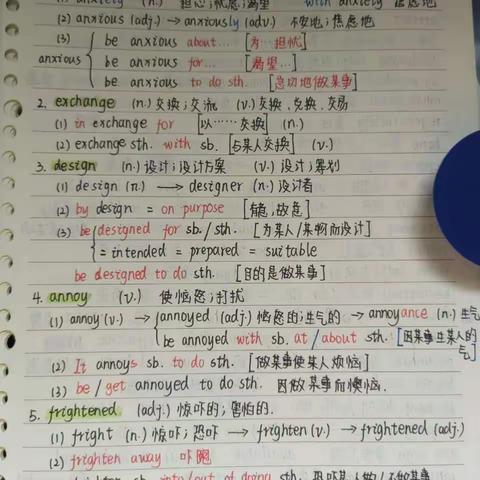 (1) anxiety (n.) 担心;忧虑;渴望 with anxiety 焦虑地
(2) anxious (adj.) → anxiously (adv.) 不安地;焦虑地
(3) anxious { be anxious about... [为…担忧]
be anxious for... [渴望…]
be anxious to do sth. [急切地做某事]
2. exchange (n.) 交换;交流 (v.) 交换、兑换、交易
(1) in exchange for [以……交换] (n.)
(2) exchange sth. with sb. [与某人交换] (v.)
3. design (n.) 设计;设计方案 (v.) 设计;筹划
(1) design (n.) → designer (n.) 设计者
(2) by design = on purpose [故意]
(3) be designed for sb./sth. [为某人/某物而设计]
= intended = prepared = suitable
be designed to do sth. [目的是做某事]
4. annoy (v.) 使恼怒;打扰
(1) annoy (v.) → annoyed (adj.) 恼怒的;生气的 → annoyance (n.) 生气
be annoyed with sb. at / about sth. [因某事生某人的气]
(2) It annoys sb. to do sth. [做某事使某人烦恼]
(3) be / get annoyed to do sth. 因做某事而懊恼.
5. frightened (adj.) 惊吓的;害怕的.
(1) fright (n.) 惊吓;恐吓 → frighten (v.) → frightened (adj.)
(2) frighten away 吓跑
sb. into/out of doing sth.